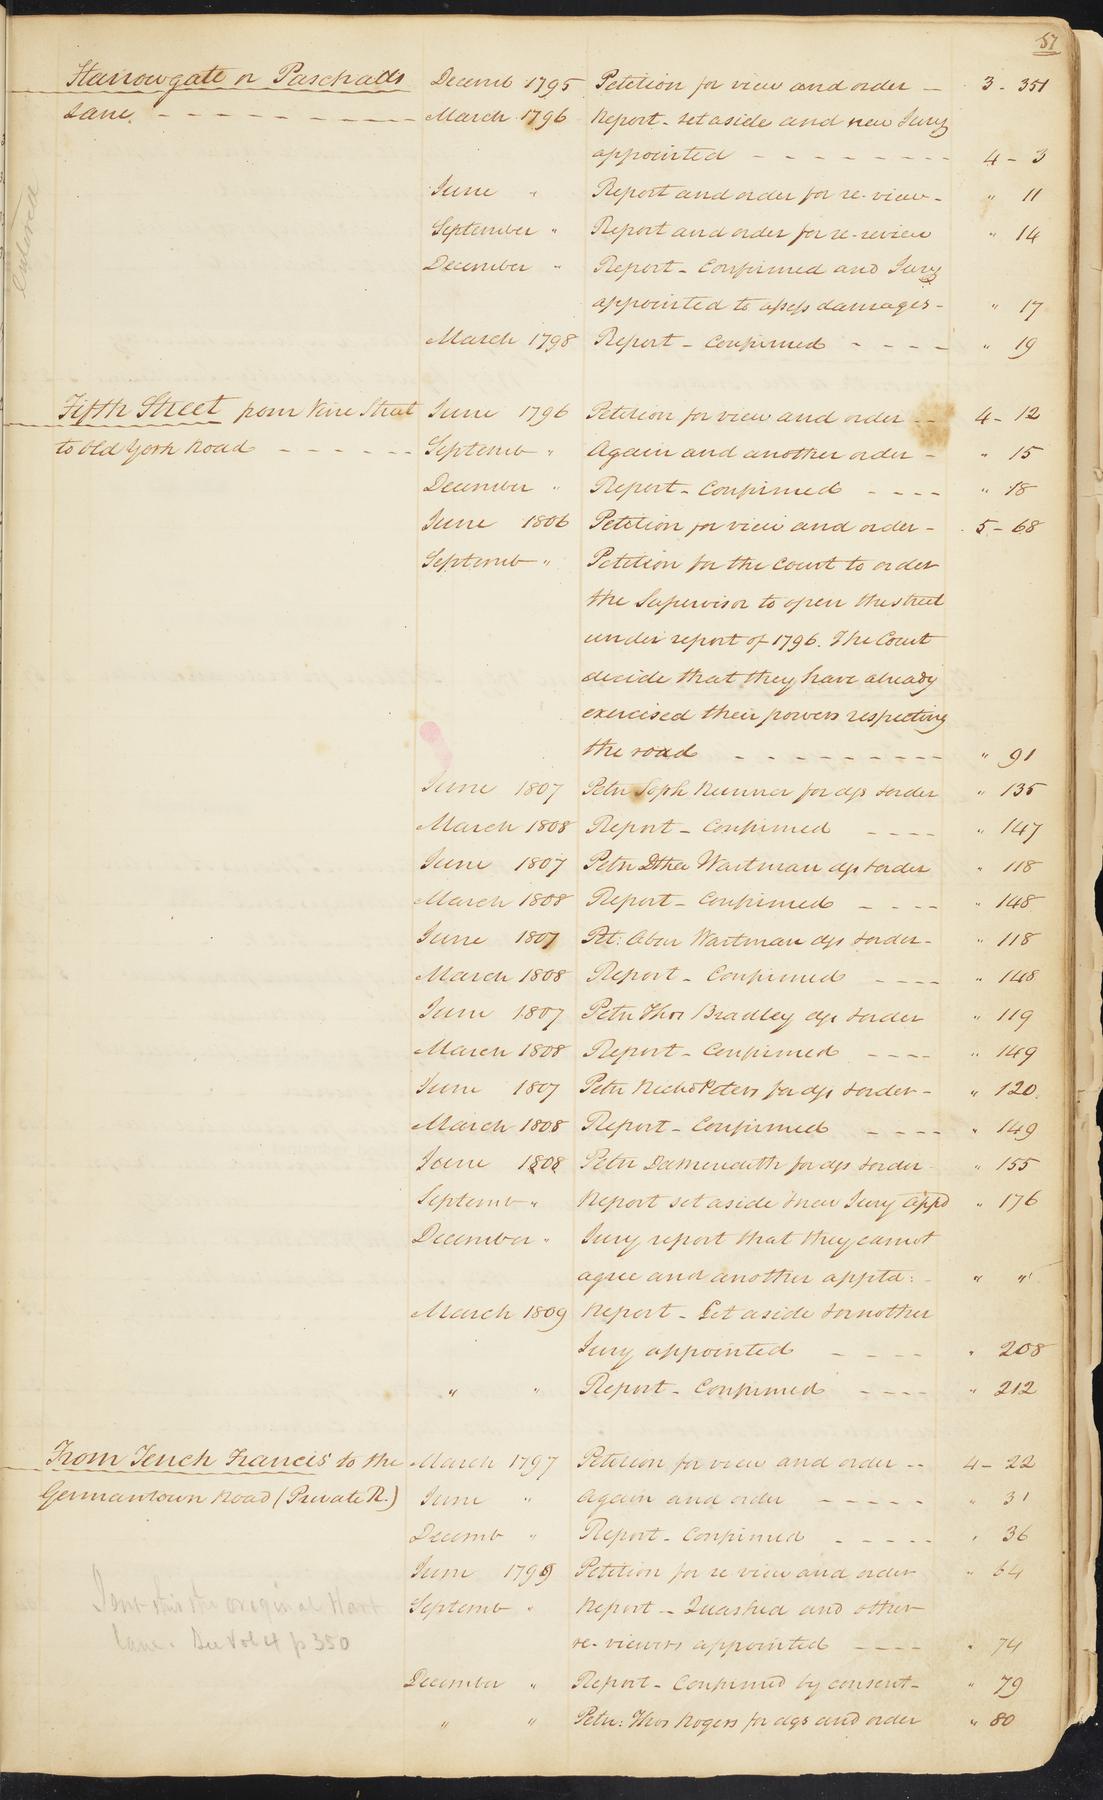 57
Harrowgate or Paschalls Decemb 1795 Petition for view and order — 3 - 351
Lane. - - - - - - - - - - March 1796 Report - set aside and new Jury
appointed - - - - - - - - - 4 - 3
June " Report and order for re-view - " 11
September " Report and order for re-review " 14
December " Report - Confirmed and Jury
appointed to assess damages - " 17
March 1798 Report - Confirmed - - - - " 19
entered
Fifth Street from Vine Street June 1796 Petition for view and order - - 4 - 12
to Old York Road - - - - - - Septemb " Again and another order - " 15
December " Report - Confirmed - - - - " 18
June 1806 Petition for view and order - 5 - 68
Septemb " Petition for the Court to order
the Supervisor to open the street
under report of 1796. The Court
decide that they have already
exercised their powers respecting
the road - - - - - - - - - " 91
June 1807 Petn Soph for dgs & order " 135
March 1808 Report - Confirmed - - - - " 147
June 1807 Petn Wartman dgs & order " 118
March 1808 Report - Confirmed - - - - " 148
June 1807 Pet: Abm Wartman dgs & order - " 118
March 1808 Report - Confirmed - - - - " 148
June 1807 Petn Thos Bradley dgs & order " 119
March 1808 Report - Confirmed - - - - " 149
June 1807 Petn Nichs Peters for dgs & order - " 120
March 1808 Report - Confirmed - - - - " 149
June 1808 Petn Meredith for dgs & order " 155
Septemb " Report set aside & new Jury appd " 176
December " Jury report that they cannot
agree and another apptd: - " "
March 1809 Report - Set aside & another
Jury appointed - - - - " 208
" " Report - Confirmed - - - - " 212
From Tench Francis' to the March 1797 Petition for view and order - - 4 - 22
Germantown Road (Private R.) June " Again and order - - - - - " 31
Decemb " Report - Confirmed - - - - - " 36
June 1799 Petition for re view and order " 64
Isnt this the original Hart Septemb " Report - Quashed and other
lane. See Vol 4 p 350 re-viewers appointed - - - - " 74
December " Report - Confirmed by consent - " 79
" " Petn: Thos Rogers for dgs and order " 80